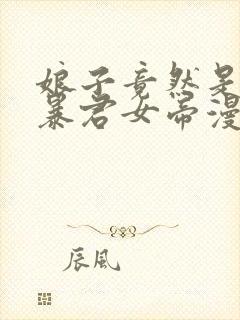 娘子竟然是
暴君女帝漫
辰风